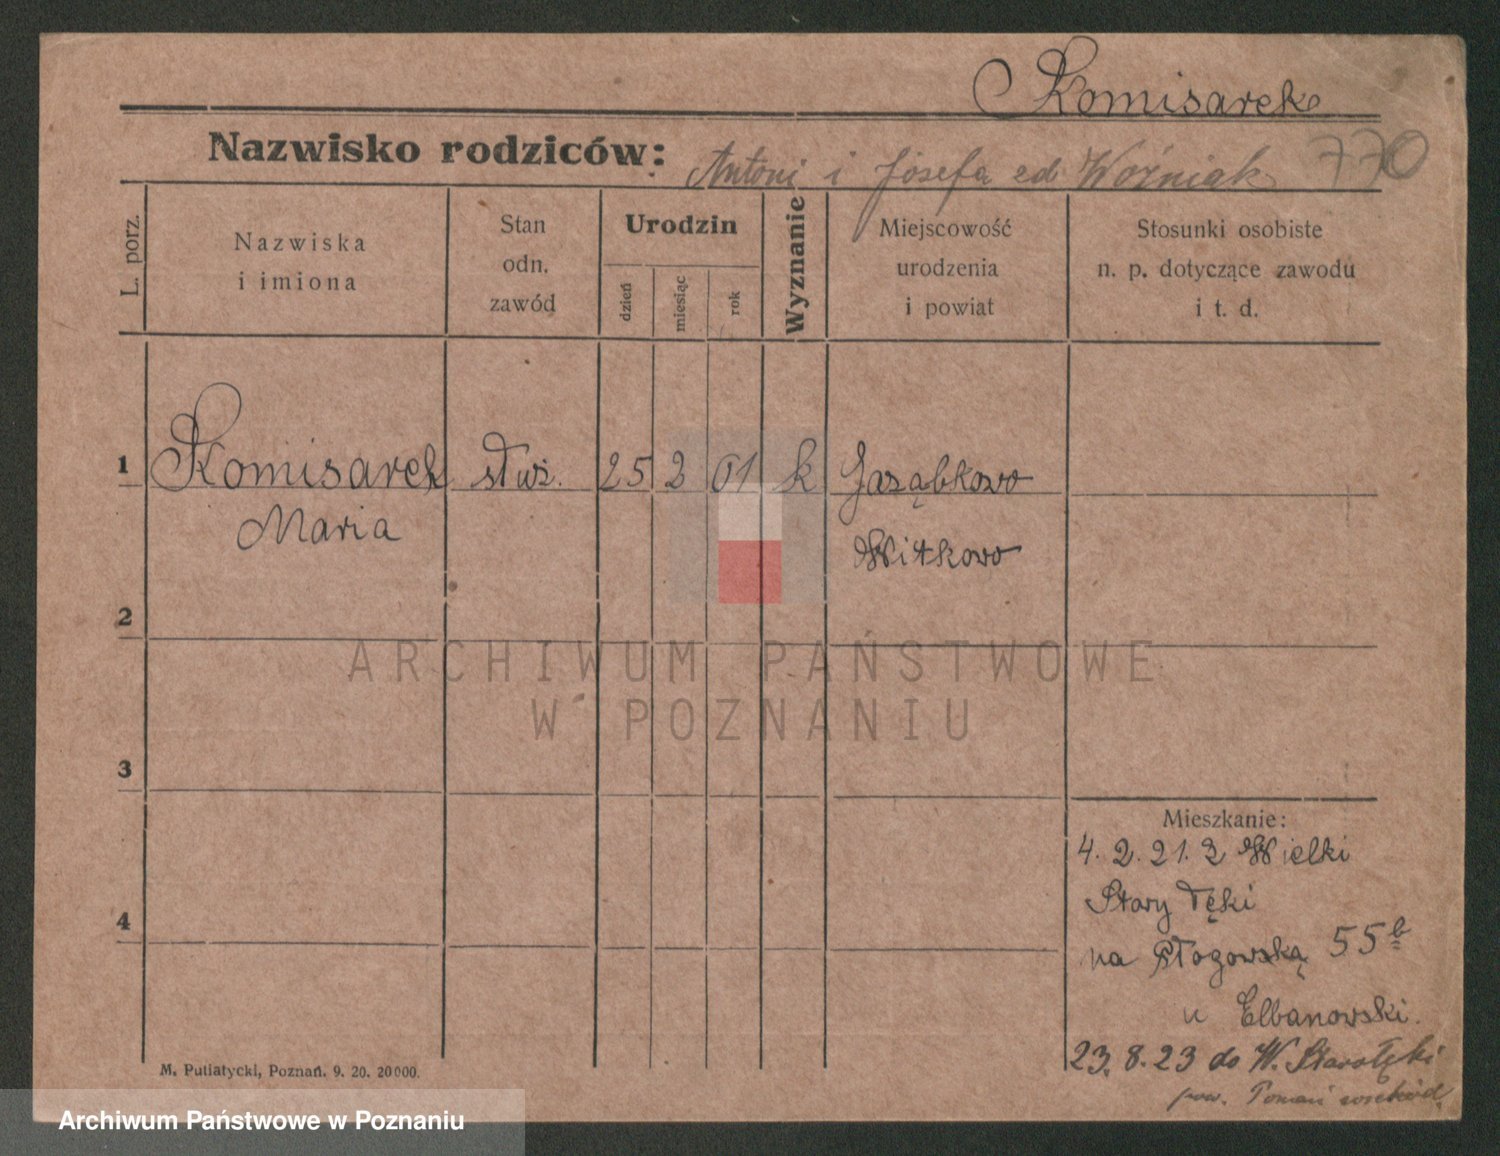 Komisarek
Nazwisko rodziców: Antoni i Józefa ed Woźniak 770
L. porz.
Nazwiska
i imiona
Stan
odn.
zawód
Urodzin
dzień
miesiąc
rok
Wyznanie
Miejscowość
urodzenia
i powiat
Stosunki osobiste
n. p. dotyczące zawodu
i t. d.
1 Komisarek służ. 25 2 01 k Jaząbkowo
Maria Witkowo
2
3
4
Mieszkanie:
4. 2. 21. z Wielki
Stary Tęki
na Głogowską 55b
u Elbanowski.
23. 8. 23 do W. Starołęki
pow. Poznań wschód.
M. Putiatycki, Poznań. 9. 20. 20000.
ARCHIWUM PAŃSTWOWE
W POZNANIU
Archiwum Państwowe w Poznaniu